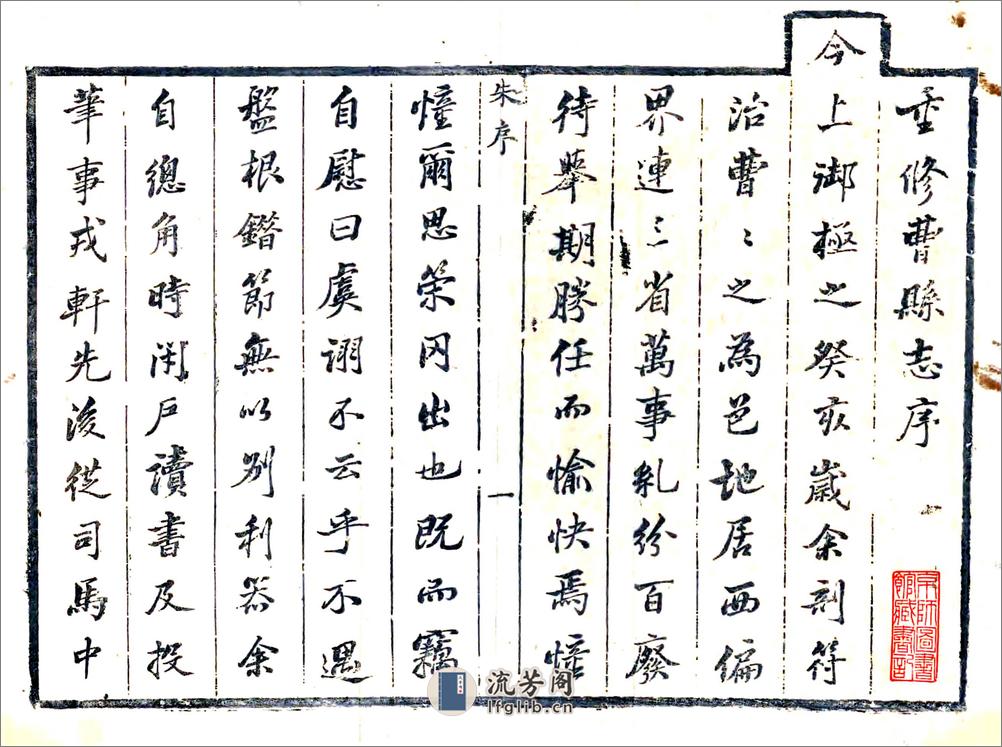 重修曹縣志序
今
上御極之癸亥歲余剖符
治曹〻之為邑地居西偏
界連三省萬事亂紛百廢
待舉期勝任而愉快焉憧
朱序
一
憧爾思策罔出也既而竊
自慰曰虞詡不云乎不遇
盤根錯節無以別利器余
自總角時閉戶讀書及投
筆事戎軒先後從司馬中
京師圖書
館藏書記
流芳阁
lfglib.cn